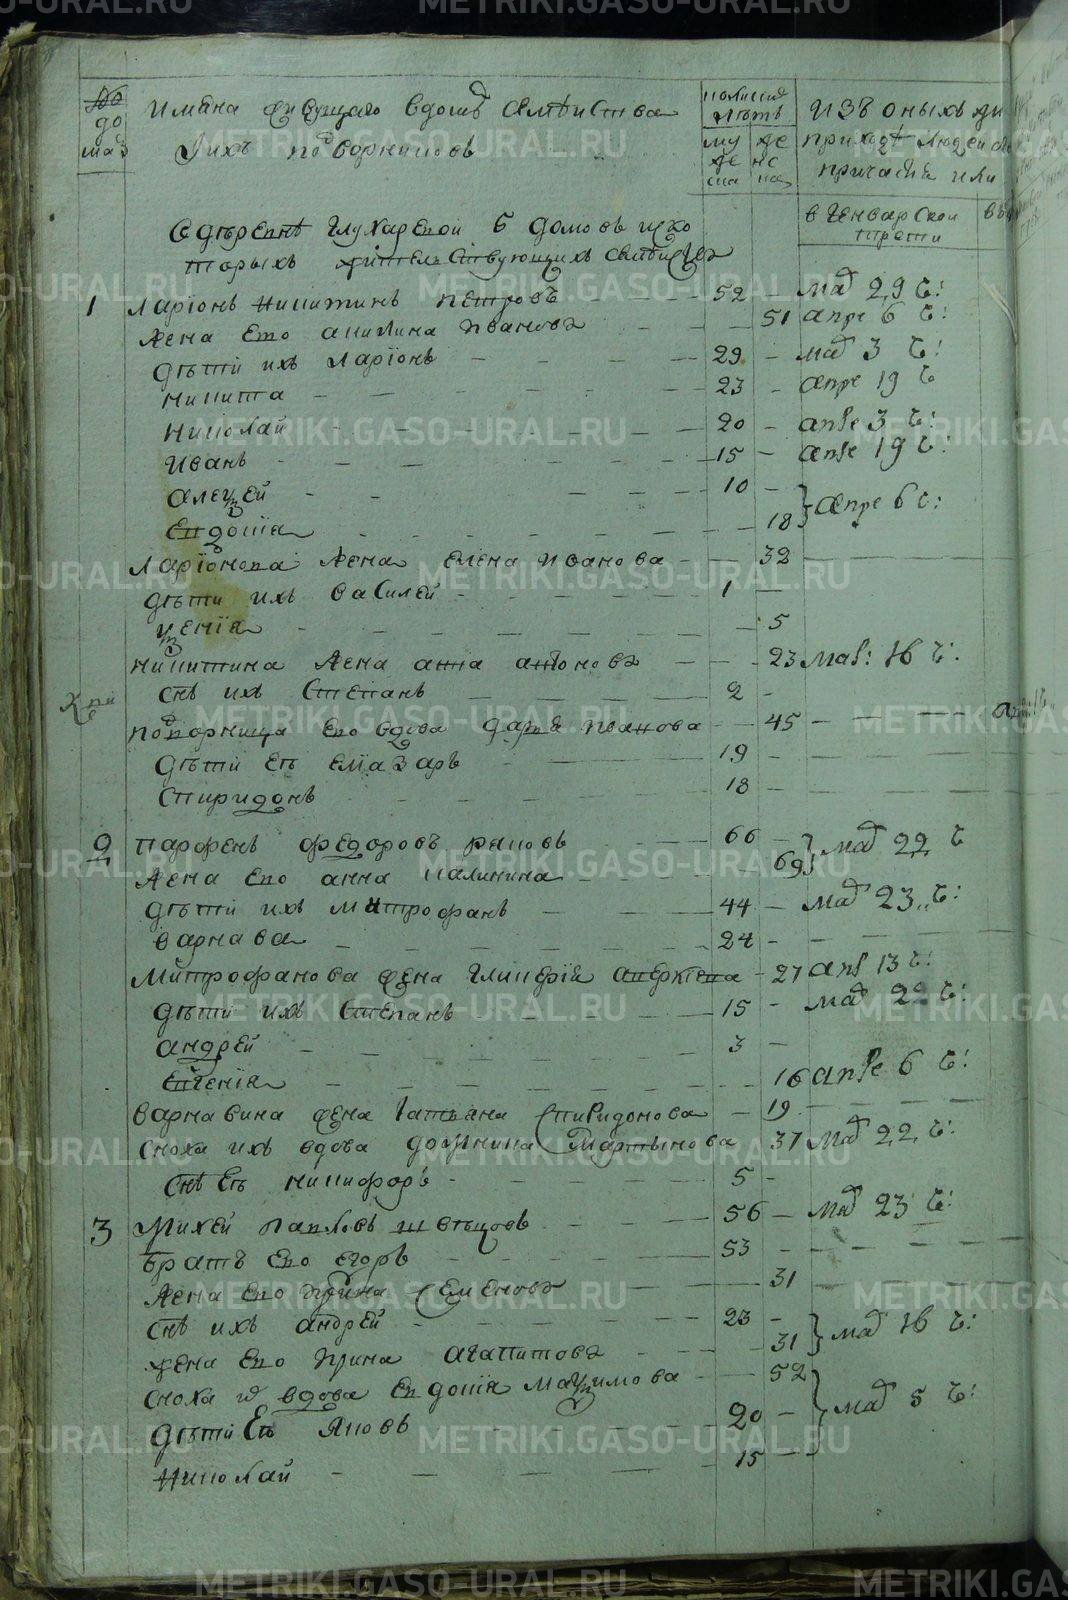 №
до
мов
имѣна живущаго в домѣ семѣиства
и ихъ подворниковъ
коликия
лѣтъ
му
же
ска
же
нс
ка
изъ оныхъ
приходѣ людей
причастія или
в генварской
трети
в деревнѣ Глухаревой 6 домовъ в ко
торыхъ жительствующихъ семѣиствъ
1 Ларіонъ Никитинъ Петровъ 52 - мар 29 ч:
жена ево акилина Иванова 51 апре 6 ч:
дѣти ихъ Ларіонъ 29 - мар 3 ч:
Никита 23 - апре 19 ч
Николай 20 - апре 3 ч:
Иванъ 15 - апре 19 ч:
алексей 10 -
Евдокія 18 } апре 6 ч:
Ларіонова жена елена Иванова 32
дѣти ихъ василей 1 -
ксенія 5
Никитина жена анна антонова 23 мар: 16 ч:
снъ ихъ Степанъ 2 -
подворница ево вдова дарья Иванова 45
дѣти еѣ елиазаръ 19 -
Спиридонъ 18 -
2 Парфенъ федоровъ 66 -
жена ево анна калинина 69 } мар 22 ч
дѣти ихъ митрофанъ 44 - мар 23 ч:
варнава 24 -
Митрофанова жена гликерія аверкіева 27 апр 13 ч:
дѣти ихъ Степанъ 15 - мар 22 ч:
андрей 3 -
Евгенія 16 апре 6 ч:
варнавина жена татьяна Спиридонова 19
сноха ихъ вдова домникиа Мартынова 37 мар 22 ч:
снъ еѣ никифоръ 5 -
3 Михей павловъ швецовъ 56 - мар 23 ч:
братъ ево егоръ 53 -
жена ево Семенова 31
снъ ихъ андрей 23 -
жена ево Ирина агапитова 31 } мар 16 ч:
сноха их вдова Евдокія максимова 52
дѣти Еѣ яковъ 20 - } мар 5 ч:
Николай 15 -